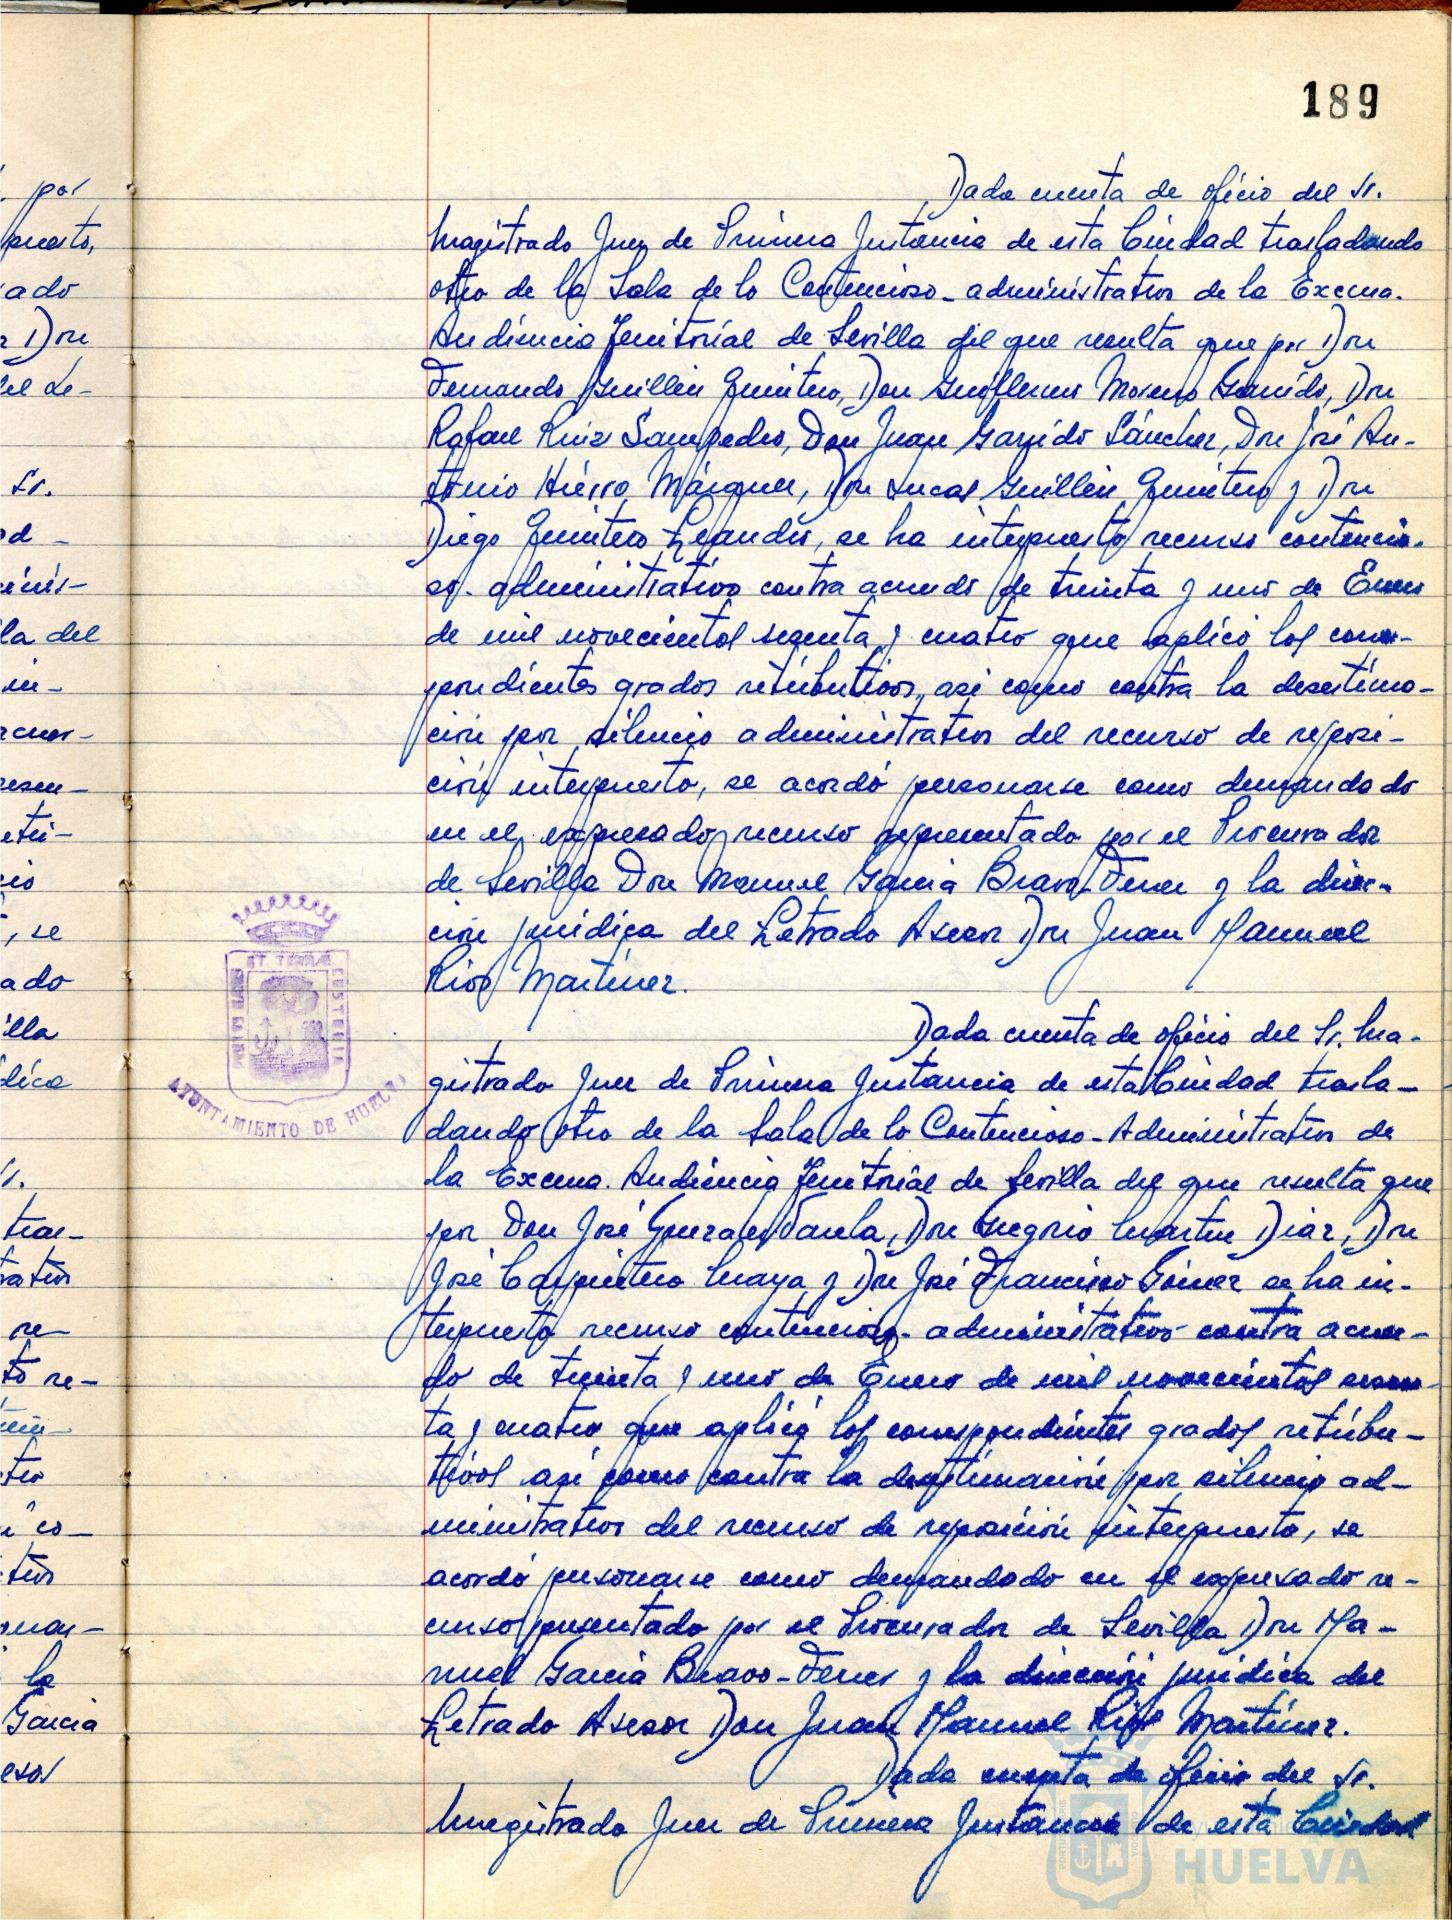 189
por
puesto,
ado
Don
Sr.
la del
in-
acuer-
esen-
, se
ado
illa
dica
re-
to re-
co-
la
Garcia
esor
Dada cuenta de oficio del Sr.
Magistrado Juez de Primera Instancia de esta Ciudad trasladando
otro de la Sala de lo Contencioso-administrativo de la Excma.
Audiencia Territorial de Sevilla del que resulta que por Don
Fernando Guillén Quintero, Don Guillermo Moreno Garrido, Don
Rafael Ruiz Sampedro, Don Juan Garrido Sánchez, Don José An-
tonio Hierro Márquez, Don Lucas Guillén Quintero y Don
Diego Quintero Leandro, se ha interpuesto recurso contencio-
so-administrativo contra acuerdo de treinta y uno de Enero
de mil novecientos sesenta y cuatro que aplicó los corres-
pondientes grados retributivos, así como contra la desestima-
ción por silencio administrativo del recurso de reposi-
ción interpuesto, se acordó personarse como demandado
en el expresado recurso representado por el Procurador
de Sevilla Don Manuel García Bravo-Ferrer y la direc-
ción jurídica del Letrado Asesor Don Juan Manuel
Rios Martínez.
Dada cuenta de oficio del Sr. Ma-
gistrado Juez de Primera Instancia de esta Ciudad trasla-
dando otro de la Sala de lo Contencioso-Administrativo de
la Excma. Audiencia Territorial de Sevilla del que resulta que
por Don José González Varela, Don Gregorio Martín Díaz, Don
José Carpintero Maya y Don José Francisco Gómez se ha in-
terpuesto recurso contencioso-administrativo contra acuer-
do de treinta y uno de Enero de mil novecientos sesen-
ta y cuatro que aplicó los correspondientes grados retribu-
tivos así como contra la desestimación por silencio ad-
ministrativo del recurso de reposición interpuesto, se
acordó personarse como demandado en el expresado re-
curso presentado por el Procurador de Sevilla Don Ma-
nuel García Bravo-Ferrer y la dirección jurídica del
Letrado Asesor Don Juan Manuel Rios Martínez.
Dada cuenta de oficio del Sr.
Magistrado Juez de Primera Instancia de esta Ciudad
AYUNTAMIENTO DE HUELVA
HUELVA